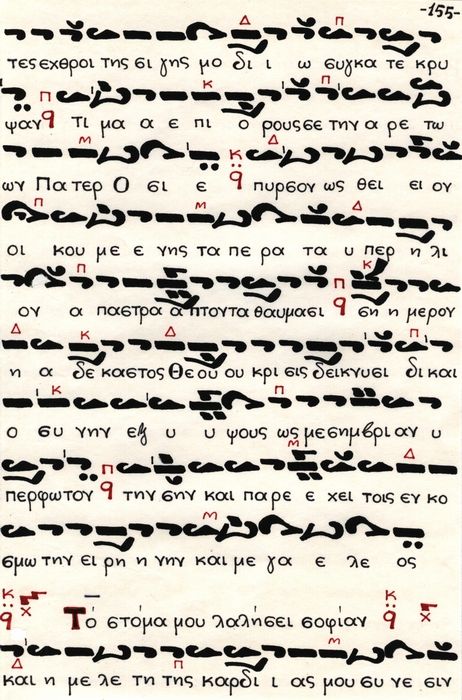 -155-
τες εχθροι της ει γης μο δι ι ω ευγκα τε κρυ
ψαν τι μα α ε πι ο ρους σε την α ρε τω
ων Πατερ Ο σι ε πυρσον ως θει ει ον
οι κου με ε νης τα πε ρα τα υ περ η λι
ον α παστρα α πτοντα θαυμασι ση η μερον
η α δε καστος Θε ου ου κρι σις δεικνυσι δι και
ο συ νην εξ υ υ ψους ως μεσημβριαν υ
περφωτον την σην και παρε ε χει τοις εν κο
σμω την ει ρη η νην και με γα ε λε ος
Το στόμα μου λαλήσει σοφίαν
και η με λε τη της καρδι ι ας μου συ νε σιν